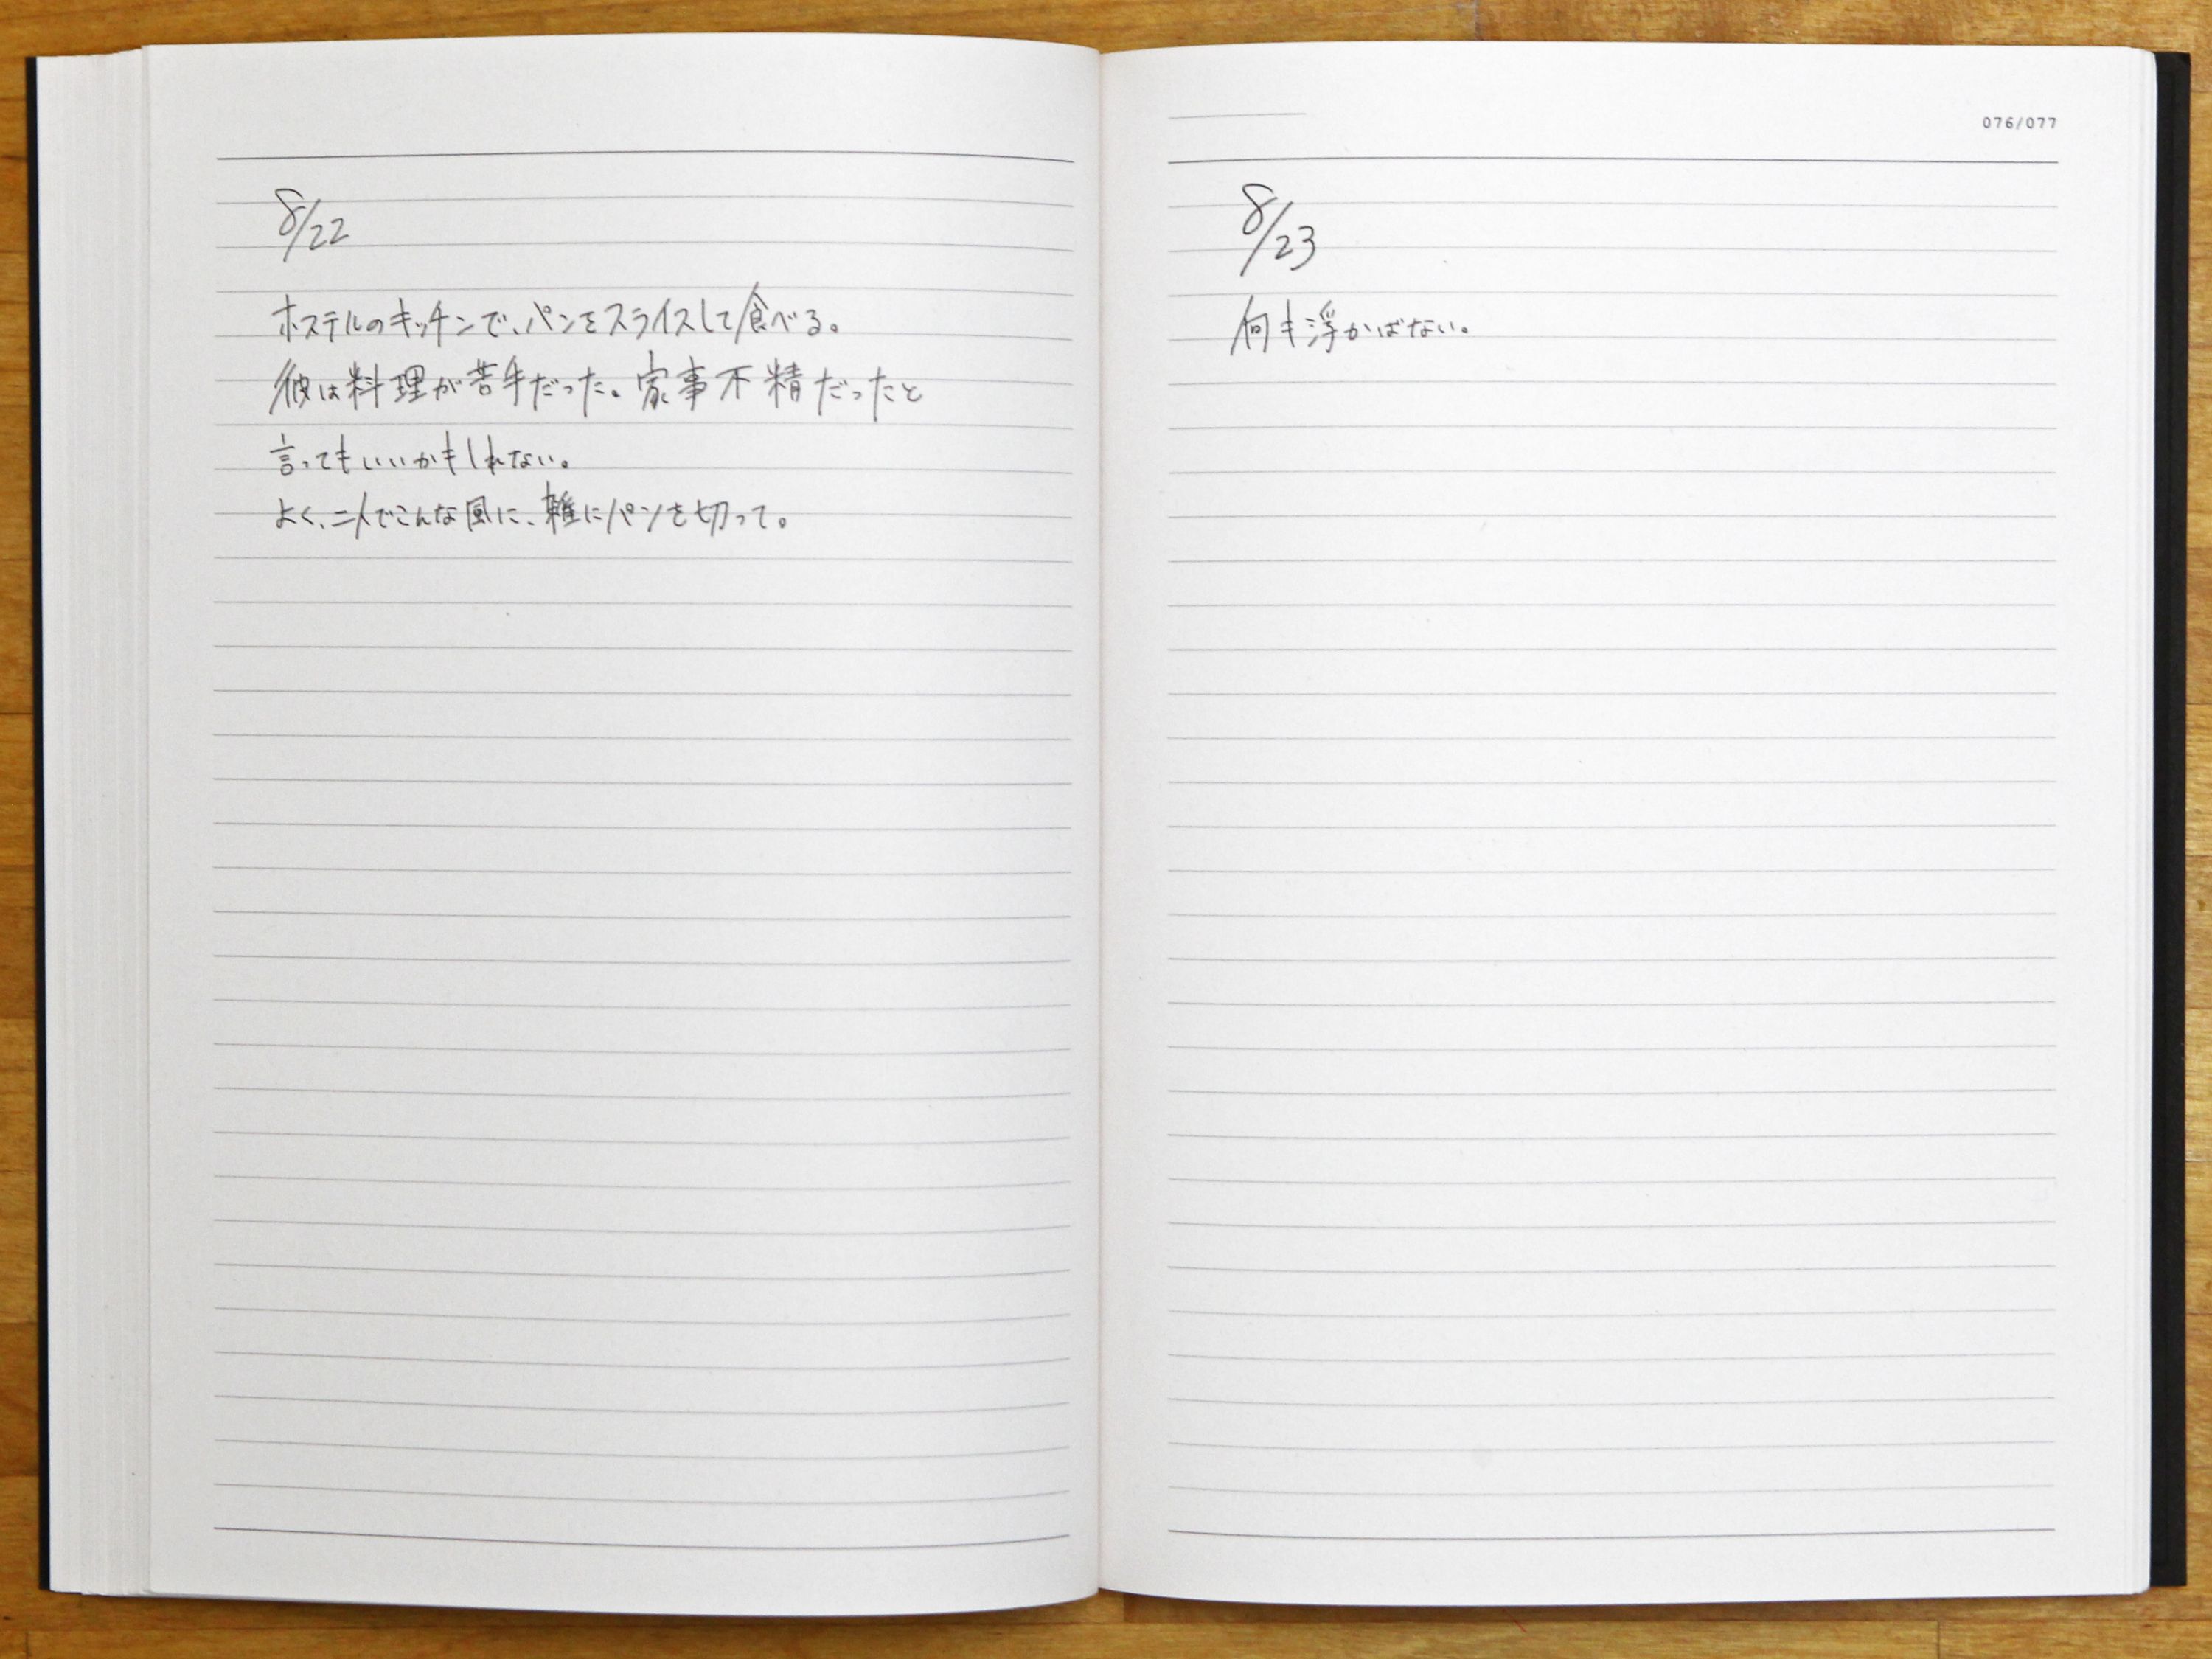 8/22
ホステルのキッチンで、パンをスライスして食べる。
彼は料理が苦手だった。家事不精だったと
言ってもいいかもしれない。
よく、二人でこんな風に、雑にパンを切って。
076/077
8/23
何も浮かばない。